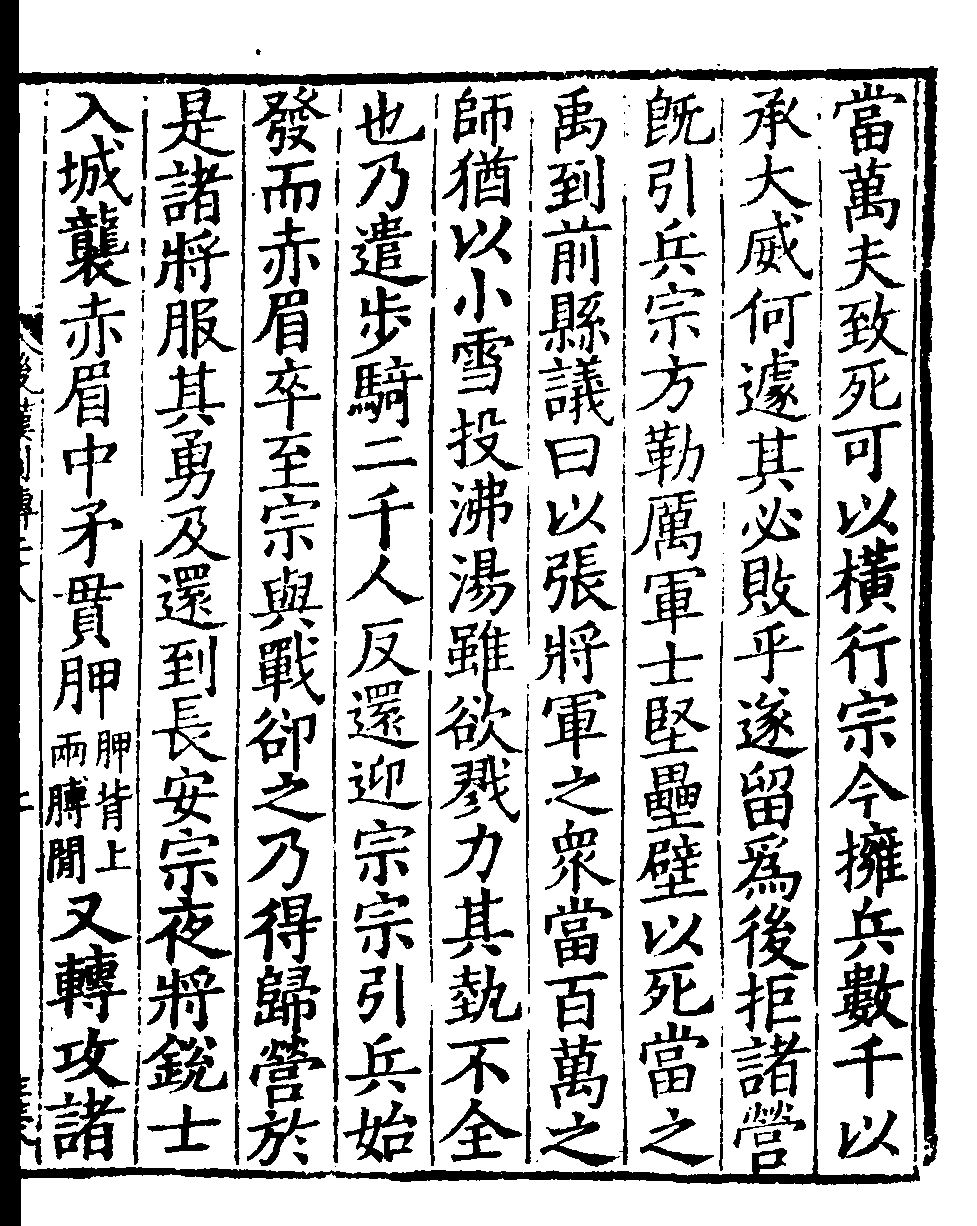 當萬夫致死可以橫行宗今擁兵數千以
承大威何遽其必敗乎遂留爲後拒諸營
旣引兵宗方勒厲軍士堅壘壁以死當之
禹到前縣議曰以張將軍之衆當百萬之
師猶以小雪投沸湯雖欲戮力其埶不全
也乃遣步騎二千人反還迎宗宗引兵始
發而赤眉卒至宗與戰卻之乃得歸營於
是諸將服其勇及還到長安宗夜將銳士
入城襲赤眉中矛貫胛
胛背上
兩膊閒
又轉攻諸